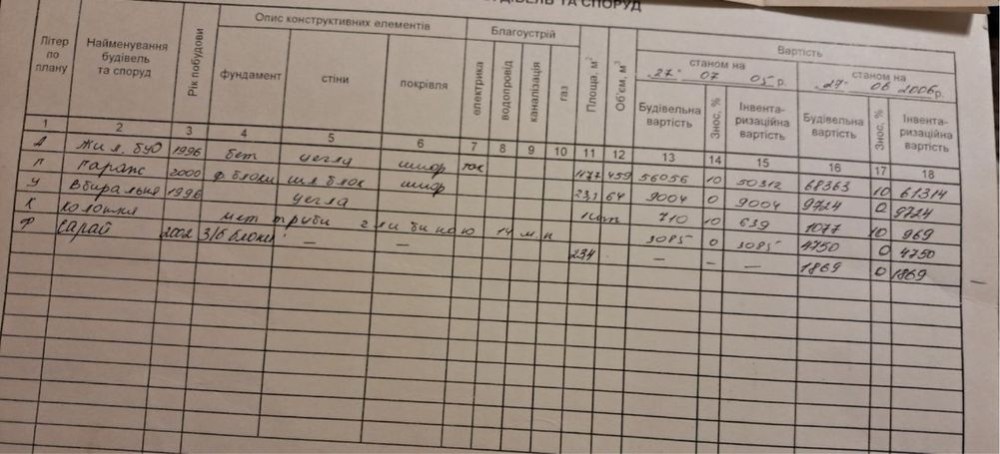 БУДІВЕЛЬ ТА СПОРУД
Літер по плану
Найменування будівель та споруд
Рік побудови
Опис конструктивних елементів
фундамент
стіни
покрівля
Благоустрій
електрика
водопровід
каналізація
газ
Площа, м²
Об'єм, м³
Вартість
станом на
27 07 05 р.
Будівельна вартість
Знос, %
Інвента-ризаційна вартість
станом на
27 06 2006р.
Будівельна вартість
Знос, %
Інвента-ризаційна вартість
1 2 3 4 5 6 7 8 9 10 11 12 13 14 15 16 17 18
А жил. буд 1996 бет цегла шиф 459 56056 10 50312 68363 10 61314
гараж 2000 ф блоки шл блок шиф 23,1 64 9004 0 9004 9724 0 9724
У Вбиральня 1996 цегла 710 10 639 1077 10 969
К колонка мет труби глибиною 14 м н 3085 0 3085 4750 0 4750
Ф сарай 2002 З/б блоки — — 234 — — — 1869 0 1869